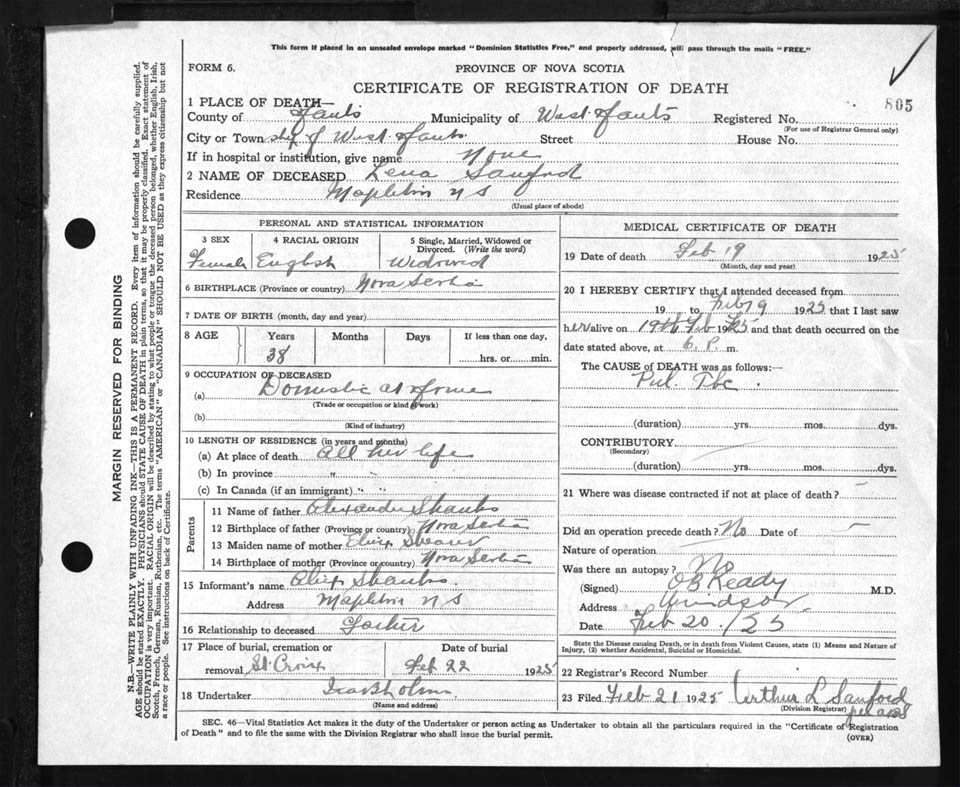 This form if placed in an unsealed envelope marked "Dominion Statistics Free," and properly addressed, will pass through the mails "FREE."
FORM 6.
PROVINCE OF NOVA SCOTIA
CERTIFICATE OF REGISTRATION OF DEATH
805
1 PLACE OF DEATH—
County of Hants Municipality of West Hants Registered No.
(For use of Registrar General only)
City or Town ship of West Hants Street House No.
If in hospital or institution, give name None
2 NAME OF DECEASED Lena Sanford
Residence Mapleton N S
(Usual place of abode)
PERSONAL AND STATISTICAL INFORMATION
3 SEX 4 RACIAL ORIGIN 5 Single, Married, Widowed or Divorced. (Write the word)
Female English Widowed
6 BIRTHPLACE (Province or country) Nova Scotia
7 DATE OF BIRTH (month, day and year)
8 AGE Years Months Days If less than one day,
38 hrs. or min.
9 OCCUPATION OF DECEASED
(a) Domestic at Home
(Trade or occupation or kind of work)
(b)
(Kind of industry)
10 LENGTH OF RESIDENCE (in years and months)
(a) At place of death All her life
(b) In province "
(c) In Canada (if an immigrant) " "
Parents
11 Name of father Alexander Shanks
12 Birthplace of father (Province or country) Nova Scotia
13 Maiden name of mother
14 Birthplace of mother (Province or country) Nova Scotia
15 Informant's name Shanks
Address Mapleton N S
16 Relationship to deceased
17 Place of burial, cremation or Date of burial
removal St Croix Feb 22 1925
18 Undertaker
(Name and address)
MEDICAL CERTIFICATE OF DEATH
19 Date of death Feb 19 1925
(Month, day and year)
20 I HEREBY CERTIFY that I attended deceased from
19 to Feb 19 1925 that I last saw
her alive on Feb 1925 and that death occurred on the
date stated above, at 6. P. m.
The CAUSE OF DEATH was as follows:—
Pul. Tbc.
(duration) yrs. mos. dys.
CONTRIBUTORY
(Secondary)
(duration) yrs. mos. dys.
21 Where was disease contracted if not at place of death? —
Did an operation precede death? No Date of —
Nature of operation —
Was there an autopsy? No
(Signed) O B Keddy M.D.
Address Windsor
Date Feb 20 /25
State the Disease causing Death, or in death from Violent Causes, state (1) Means and Nature of Injury, (2) whether Accidental, Suicidal or Homicidal.
22 Registrar's Record Number
23 Filed Feb 21 1925 Arthur L Sanford
(Division Registrar) per
SEC. 46—Vital Statistics Act makes it the duty of the Undertaker or person acting as Undertaker to obtain all the particulars required in the "Certificate of Registration
of Death" and to file the same with the Division Registrar who shall issue the burial permit.
(OVER)
MARGIN RESERVED FOR BINDING
N.B.—WRITE PLAINLY WITH UNFADING INK—THIS IS A PERMANENT RECORD. Every item of information should be carefully supplied.
AGE should be stated EXACTLY. PHYSICIANS should STATE CAUSE OF DEATH in plain terms, so that it may be properly classified. Exact statement of
OCCUPATION is very important. RACIAL ORIGIN will be described by stating to what people or tongue the deceased person belonged, whether English, Irish,
Scotch, French, German, Russian, Ruthenian, etc. The terms "AMERICAN" or "CANADIAN" SHOULD NOT BE USED as they express citizenship but not
a race or people. See instructions on back of Certificate.